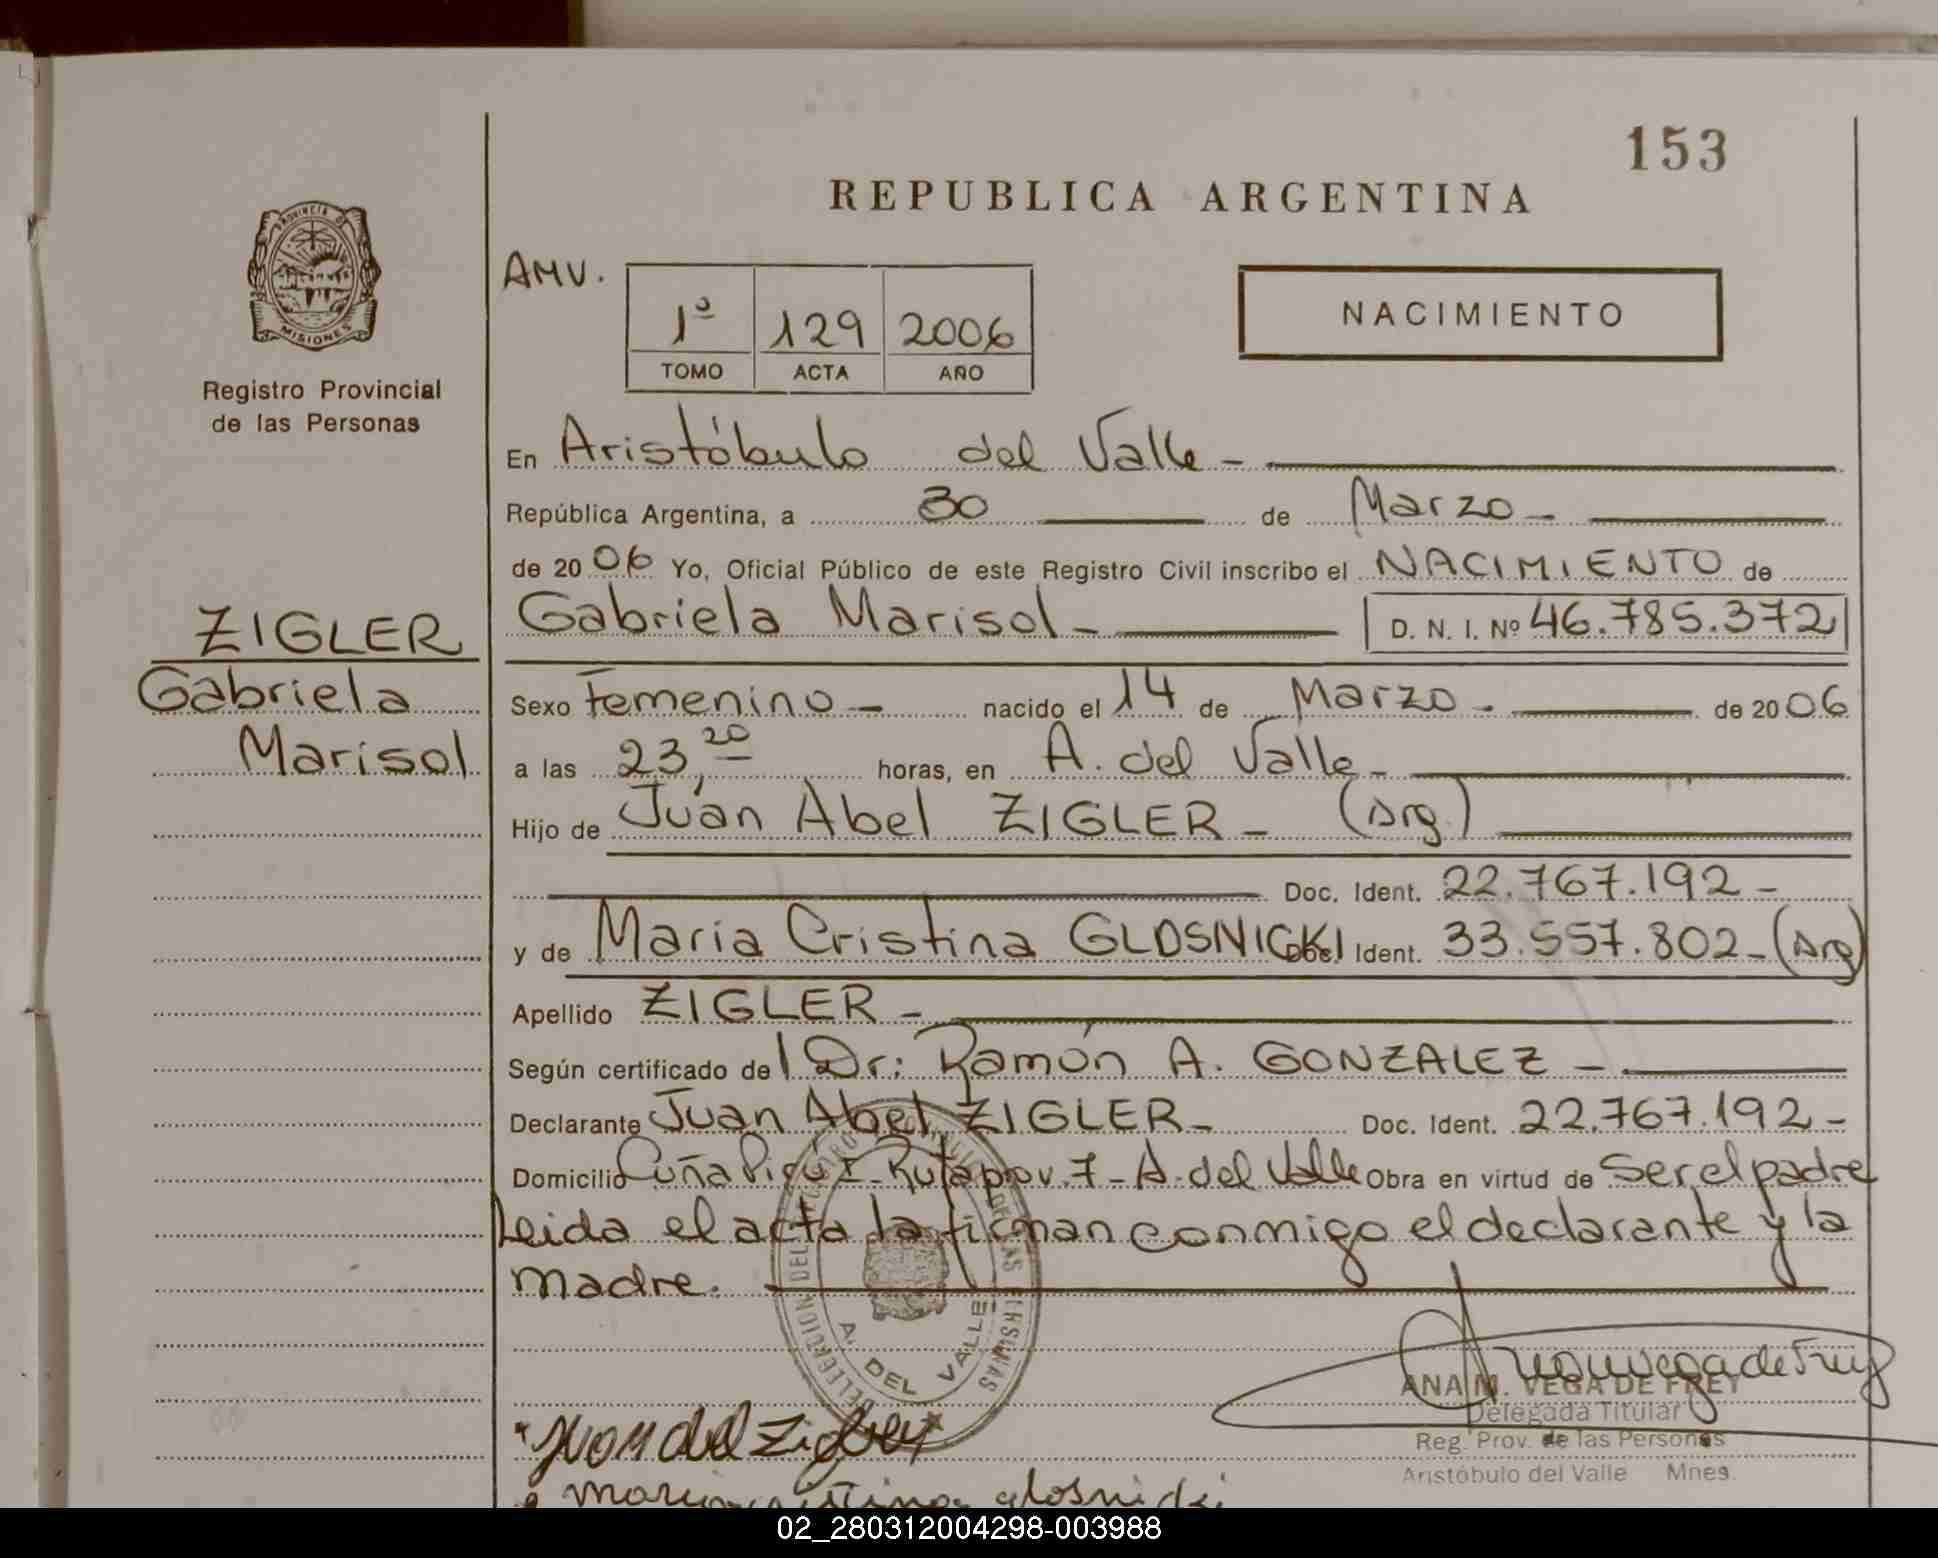 153
REPUBLICA ARGENTINA
PROVINCIA D
MISIONES
Registro Provincial
de las Personas
AMV.
1º 129 2006
TOMO ACTA AÑO
NACIMIENTO
En Aristóbulo del Valle -
República Argentina, a 30 de Marzo -
de 2006 Yo, Oficial Público de este Registro Civil inscribo el NACIMIENTO de
ZIGLER
Gabriela
Marisol
Gabriela Marisol - D. N. I. Nº 46.785.372
Sexo Femenino - nacido el 14 de Marzo - de 2006
a las 23,20 horas, en A. del Valle -
Hijo de Juan Abel ZIGLER - (Arg.)
Doc. Ident. 22.767.192 -
y de María Cristina GLOSNICKI Doc. Ident. 33.557.802 - (Arg)
Apellido ZIGLER -
Según certificado del Dr: Ramón A. GONZALEZ -
Declarante Juan Abel ZIGLER - Doc. Ident. 22.767.192 -
Domicilio Cuña Pirú I - Ruta prov. 7 - A. del Valle Obra en virtud de Ser el padre
Leida el acta la firman conmigo el declarante y la
madre.
A. DEL VALLE
ANA M. VEGA DE FREY
Delegada Titular
Reg. Prov. de las Personas
Aristóbulo del Valle Mnes.
maria cristina glosnicki
02_280312004298-003988